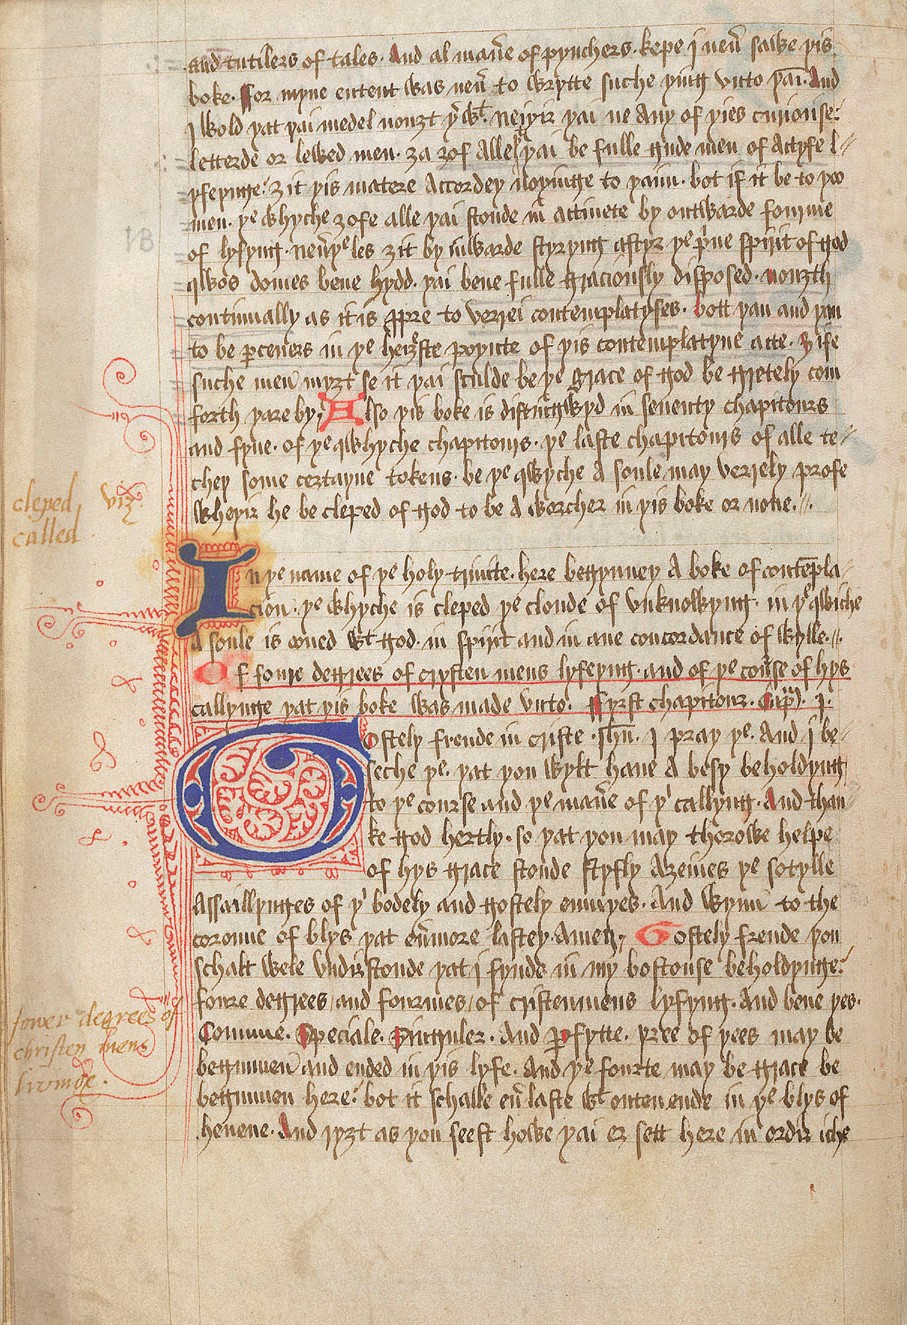 and tutilers of tales. And al mane͛ of pynchers. kepe j neu͛ sawe þis
boke. For myne entent was neu͛ to wrytte suche þing vnto þa͛i. And
j wold þat þai medel nouȝt þ͛ wt. neiþir þai ne Any of þies curiouse:
letterde or lewed men. ȝa ȝof alle þai be fulle gude men of Actyfe l-
yfeynge: ȝit þis matere Accordeþ noþingge to þaim. bot if it be to þoo
men. þe whyche ȝofe alle þai stonde in actiuete by outwarde fourme
of lyfyng. neu͛ þe les ȝit by inwarde styryng aftyr þe p͛ue spirit of god
qwos domes bene hydd. þai bene fulle graciously disposed. nouȝth
continually as it is ppre to verrei contemplatyfes. bott þan and þan
to be ꝑceners in þe heiȝste poyncte of þis contemplatyue acte. ȝife
suche men myȝt se it þai sculde be þe grace of god be gretely com
forth þare by. Also þis boke is distingwyd in seuenty chapitours
and fyue. of þe qwhyche chapitours. þe laste chapitours of alle te-
cheþ some certayne tokens. be þe qwyche A soule may verrely profe
wheþir he be cleped of god to be a worcher in þis boke or none.
cleped viz
called
In þe name of þe holy trinite. here begynneþ A boke of conte̅pla-
cion. þe whyche is cleped þe cloude of vnknowyng. in þe qwiche
A soule is oned wt god. in spirit and in ane concordance of wylle.
Of foure degrees of crysten mens lyfeyng. and of þe couse of hys
callynge þat þis boke was made vnto. Fyrst chapitour. Cap͛m. j.
Gostely frende in criste. jhu̅. j pray þe. And j be-
seche þe. þat þou wylt haue A besy beholdyng
to þe course and þe mane͛ of þi callyng. And than-
ke god hertly. so þat þou may therowe helpe
of hys grace stonde styfly Aȝeines þe sotylle
Assaillynges of þi bodely and gostely enmyes. And wynn to the
coroune of blys þat eu͛more lasteþ. Amen. Gostely frende þou
schalt wele vndirstonde þat j fynde in my bostouse beholdynge:
foure degrees and fourmes of cristenmens lyfyng. And bene þes.
Comune. Speciale. Singuler. And Ꝑfytte. þree of þees may be
begunnen and ended in þis lyfe. And þe fourte may be grace be
begunnen here: bot it schalle eu͛ laste wt outen ende in þe blys of
heuene. And ryȝt as þou seest howe þai er sett here in ordir iche
fower degrees of
christen mens
livinge.